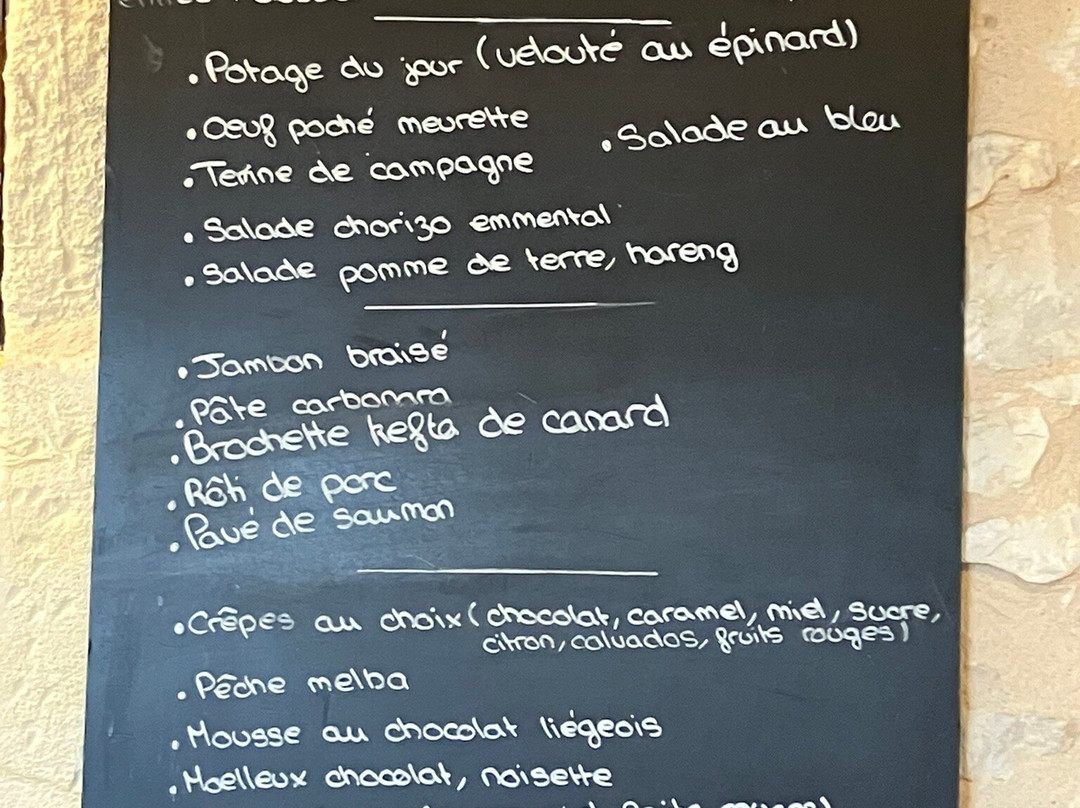 • Potage du jour (velouté au épinard)
• Oeuf poché meurette
• Salade au bleu
• Terrine de campagne
• Salade chorizo emmental
• Salade pomme de terre, hareng
• Jambon braisé
• Pâte carbonara
• Brochette kefta de canard
• Rôti de porc
• Pavé de saumon
• Crêpes au choix (chocolat, caramel, miel, sucre,
citron, calvados, fruits rouges)
• Pêche melba
• Mousse au chocolat liégeois
• Moelleux chocolat, noisette